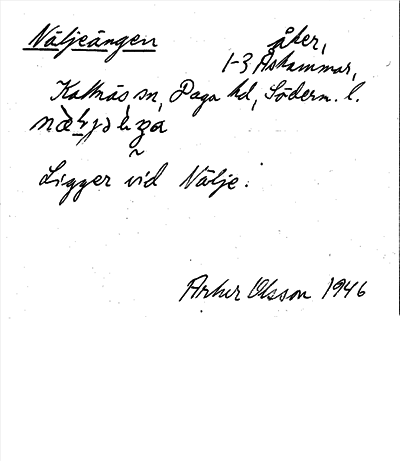 Näljeängen åker,
1-3 Åskammar,
Kattnäs sn, Daga hd, Söderm. l.
Ligger vid Nälje.
Artur Olsson 1946